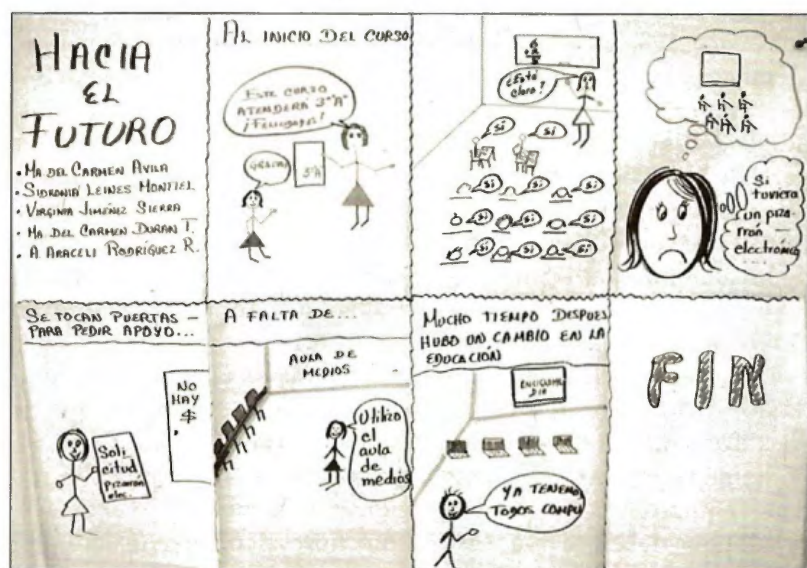 HACIA
EL
FUTURO
• MA DEL CARMEN AVILA
• SIDRONIA LEINES MONTIEL
• VIRGINIA JIMÉNEZ SIERRA
• MA DEL CARMEN DURAN T.
• A. ARACELI RODRÍGUEZ R.
AL INICIO DEL CURSO
ESTE CURSO
ATENDERÁ 3º "A"
¡FELICIDADES!
GRACIAS
3ºA
¿Está
claro?
si
si
si
si
si
si
si
si
si
si
si
Si
tuviera
un piza-
rrón
electrónico
SE TOCAN PUERTAS —
PARA PEDIR APOYO...
NO
HAY
$
Soli
citud
pizarrón
elec.
A FALTA DE...
AULA DE
MEDIOS
Utilizo
el
aula
de
medios
MUCHO TIEMPO DESPUES
HUBO UN CAMBIO EN LA
EDUCACIÓN
YA TENEMOS
TODOS COMPU
FIN